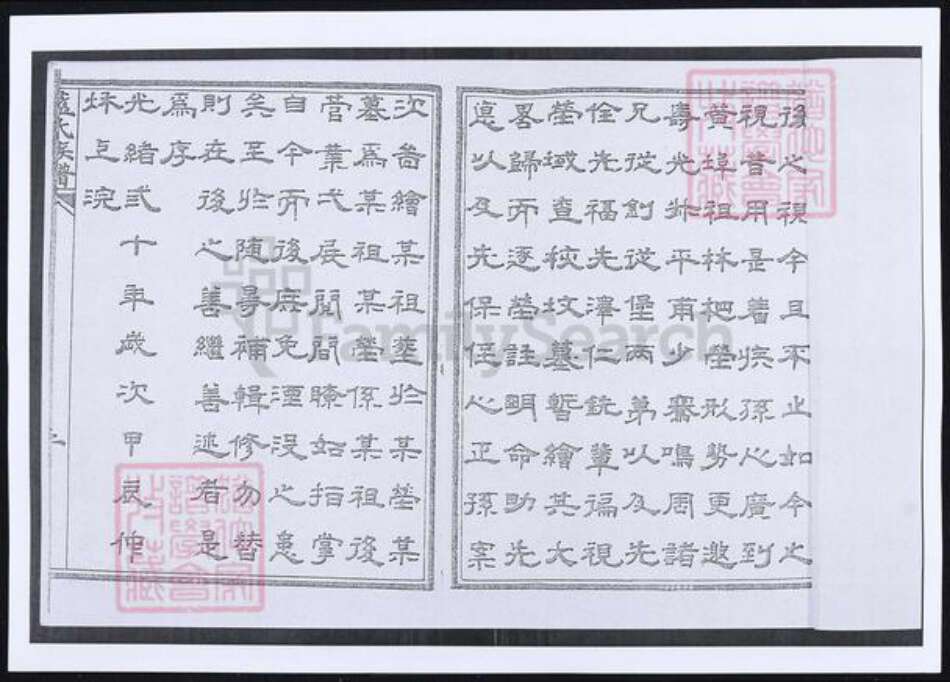 後之視今且不止如今之
視昔用是著疾孫心廣到
黃埠祖林把塋形勢更邀
壽光 平甫少齋鳴周諸
兄從創從堡兩弟以及先
佺先福先澤仁銑輩福視
塋域查校坟墓暫繪其大
畧歸而逐塋註明命助先
悳以及先保侄心正孫案
次嗇繪某祖塟於某塋某
墓為某祖某塋係某祖後
葉弌展閱間瞭如指掌
自今而後庶免湮沒之患
矣至於隨尋補輯修勿替
則在後之善繼善述者是
為序
光緒弍十年歲次甲辰仲
秋上浣
氏族譜
FamilySearch